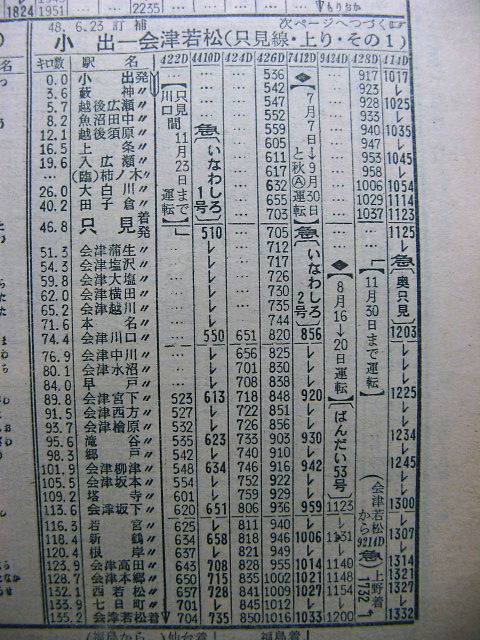 1824
1951
2235
▽もりおか
48. 6.23 訂 補
次ページへつづく
小 出―会津若松(只見線・上り・その1)
キロ数 駅 名 422D 4410D 424D 426D 7412D 9424D 428D 414D
0.0 小 出 発 … … … 536 917 1017
3.6 藪 神 〃 … … … 542 923 ↓
5.7 越後広瀬 〃 … … … 547 928 1025
8.2 魚沼田中 〃 … … … 552 933 ↓
12.1 越後須原 〃 … … … 559 940 1035
16.5 上 条 〃 … … … 605 947 ↓
19.6 入広瀬 〃 … … … 611 953 1045
… (臨)柿ノ木 〃 … … … 617 958 ↓
26.0 大白川 〃 … … … 632 1006 1054
40.2 田子倉 〃 … … … 655 1029 1114
46.8 只 見 着 … … … 703 1037 1123
発 510 … 705 1125
51.3 会津蒲生 〃 … ↓ … 712
54.3 会津塩沢 〃 … ↓ … 717
59.8 会津大塩 〃 … ↓ … 726
62.0 会津横田 〃 … ↓ … 730
65.2 会津越川 〃 … ↓ … 735
71.6 本 名 〃 … ↓ … 744
74.4 会津川口 〃 … 550 651 820 856 1203
76.9 会津中川 〃 … ↓ 656 825 ↓ ↓
80.1 会津水沼 〃 … ↓ 701 830 ↓ ↓
84.0 早 戸 〃 … ↓ 708 838 ↓ ↓
89.8 会津宮下 〃 523 613 718 848 920 1225
91.5 会津西方 〃 527 ↓ 722 851 ↓ ↓
93.7 会津檜原 〃 532 ↓ 726 856 ↓ ↓
95.6 滝 谷 〃 535 623 733 903 930 1234
98.3 郷 戸 〃 542 ↓ 740 910 ↓ ↓
101.9 会津柳津 〃 548 634 746 916 942 1245
105.5 会津坂本 〃 554 ↓ 752 922 ↓ ↓
109.2 塔 寺 〃 601 ↓ 759 929 ↓ ↓
113.6 会津坂下 〃 620 651 806 936 959 1123 1300
116.3 若 宮 〃 625 ↓ 811 940 ↓ ↓
118.4 新 鶴 〃 634 658 818 946 1006 1131 1307
120.4 根 岸 〃 637 ↓ 821 949 ↓ ↓
123.9 会津高田 〃 643 708 828 955 1014 1140 1314
128.7 会津本郷 〃 650 715 835 1002 1021 1148 1321
132.1 西若松 〃 657 728 841 1009 1027 1154 1327
133.9 七日町 〃 701 ↓ 845 1012 ↓ ↓
135.2 会津若松着 704 735 850 1016 1033 1200 1332
【只見―川口間11月23日まで運転】
急 いなわしろ1号
◆【7月7日→9月30日と秋Ⓐ運転】
急 いなわしろ2号
◆【8月16→20日運転】
【ばんだい53号】
【11月30日まで運転】
急【奥只見】
(会津若松から9214D 急 上野着1732)
仙台着
福島着